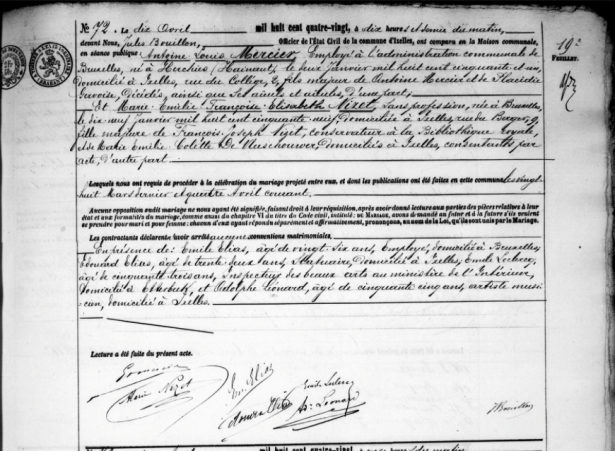 N° 72. Le dix Avril mil huit cent quatre-vingt, à dix heures et demie du matin,
devant Nous, Jules Bouillon, Officier de l'État Civil de la commune d'Ixelles, ont comparu en la Maison communale,
en séance publique : Antoine Louis Mercier, Employé à l'administration communale de
Bruxelles, né à Herchies (Hainaut), le huit Janvier mil huit cent cinquante et un,
domicilié à Ixelles, rue du Collège, fils majeur de Antoine Mercier et de Placidie
Gervoise, Décédés, ainsi que ses aïeuls et aïeules d'une part;
Et Marie Emélie Françoise Elisabeth Nizet, sans profession, née à Bruxelles,
le dix neuf Janvier mil huit cent cinquante neuf, domiciliée à Ixelles, rue du Berger, 9,
fille majeure de François Joseph Nizet, conservateur à la Bibliothèque Royale,
et de Marie Emélie Colette De domiciliés à Ixelles, consentants par
acte, d'autre part.
19e
FEUILLET.
Lesquels nous ont requis de procéder à la célébration du mariage projeté entre eux, et dont les publications ont été faites en cette commune les vingt-
huit Mars dernier et quatre Avril courant.
Aucune opposition audit mariage ne nous ayant été signifiée, faisant droit à leur réquisition, après avoir donné lecture aux parties des pièces relatives à leur
état et aux formalités du mariage, comme aussi du chapitre VI du titre du Code civil, intitulé: DU MARIAGE, avons demandé au futur et à la future s'ils veulent se
prendre pour mari et pour femme; chacun d'eux ayant répondu séparément et affirmativement, prononçons, au nom de la Loi, qu'ils sont unis par le Mariage.
Les contractants déclarent avoir arrêté aucunes conventions matrimoniales.
En présence de: Emile Elias, âgé de vingt-six ans, Employé, domicilié à Bruxelles,
Edouard Elias, âgé de trente-deux ans, Statuaire, Domicilié à Ixelles, Emile Leclercq,
âgé de cinquante-trois ans, Inspecteur des beaux arts au ministère de l'Intérieur,
domicilié à Etterbeek, et Adolphe Léonard, âgé de cinquante cinq ans, artiste musi-
cien, domicilié à Ixelles.
Lecture a été faite du présent acte.
Em Elias
Emile Leclercq
Marie Nizet
Ad. Leonard
JBouillon
mil huit cent quatre-vingt, à heures du matin